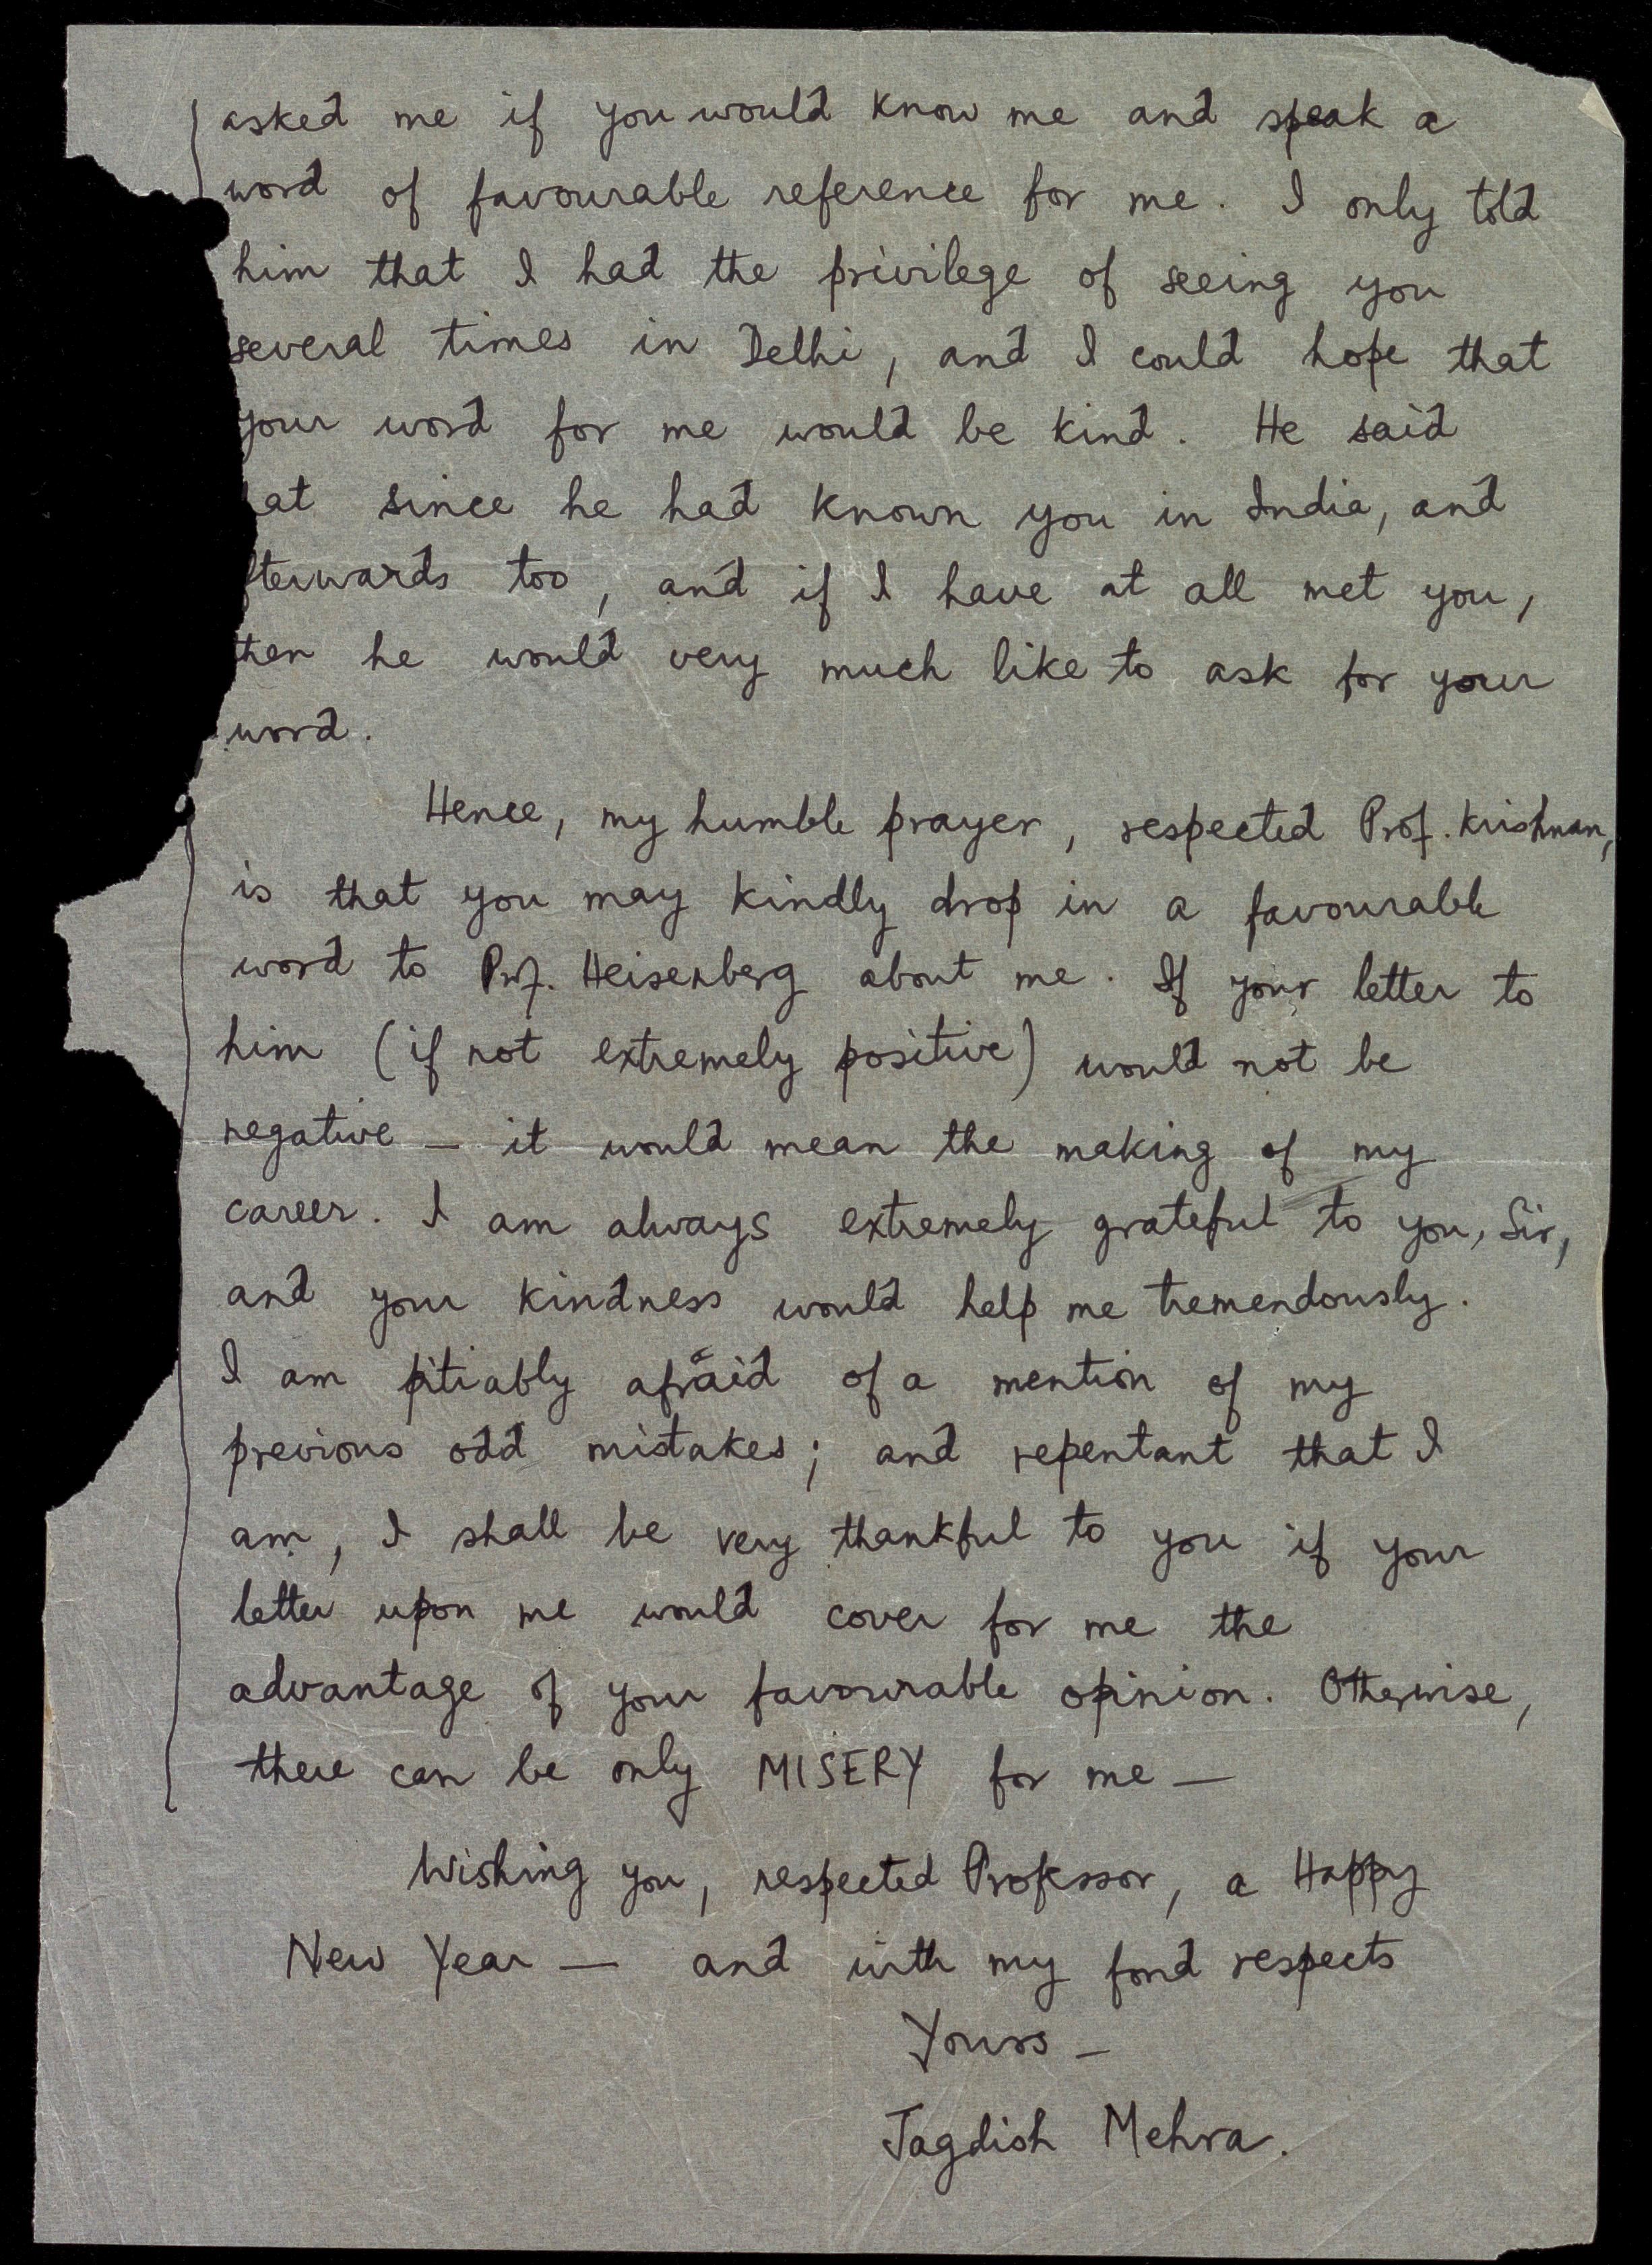 asked me if you would know me and speak a
word of favourable reference for me. I only told
him that I had the privilege of seeing you
several times in Delhi, and I could hope that
your word for me would be kind. He said
at since he had known you in India, and
fterwards too, and if I have at all met you,
then he would very much like to ask for your
word.
Hence, my humble prayer, respected Prof. Krishnan,
is that you may kindly drop in a favourable
word to Prof. Heisenberg about me. If your letter to
him (if not extremely positive) would not be
negative — it would mean the making of my
career. I am always extremely grateful to you, Sir,
and your kindness would help me tremendously.
I am pitiably afraid of a mention of my
previous odd mistakes; and repentant that I
am, I shall be very thankful to you if your
letter upon me would cover for me the
advantage of your favourable opinion. Otherwise,
there can be only MISERY for me —
Wishing you, respected Professor, a Happy
New Year — and with my fond respects
Yours —
Jagdish Mehra.